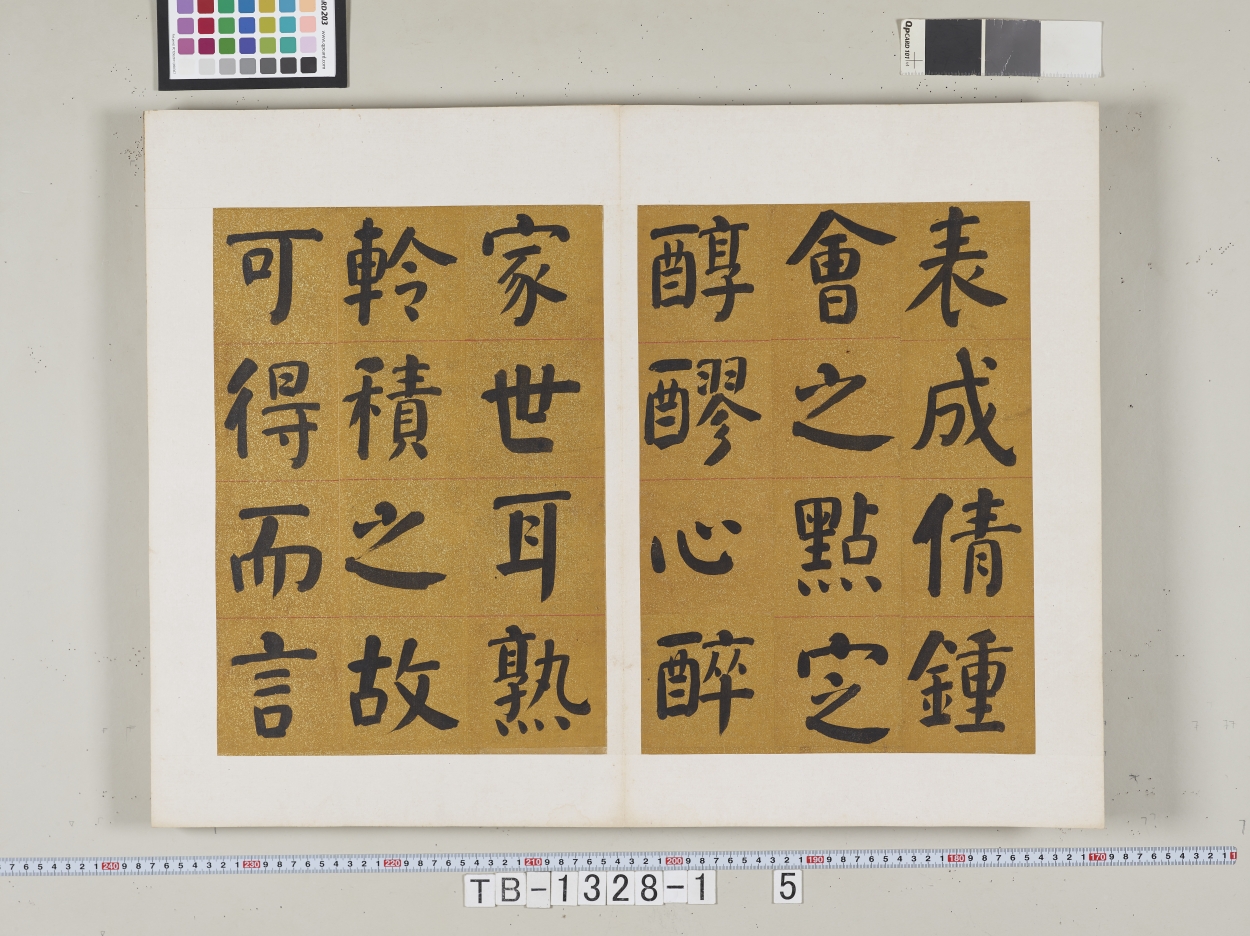 表成倩鍾
會之點㝎
醇醪心醉
家世耳熟
軨積之故
可得而言
TB-1328-1 5